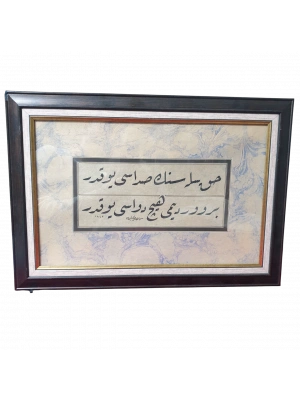 حق سله سنك صداسی یوقدر
بر ووردیمی هیچ دواسی یوقدر